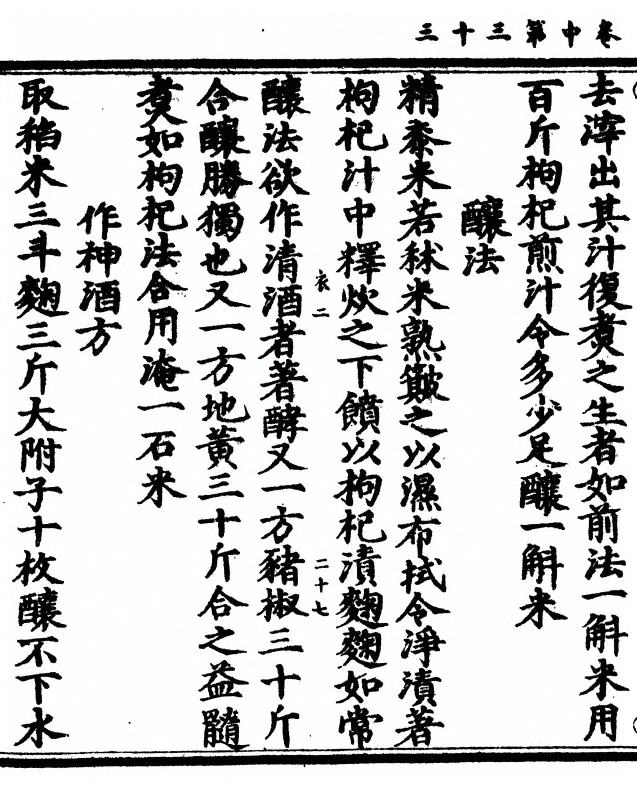 卷中第三十三
去滓出其汁復煑之生者如前法一斛米用
百斤枸杞煎汁令多少足釀一斛米
釀法
精黍米若秫米熟䉛之以濕布拭令淨漬著
枸杞汁中釋炊之下饙以枸杞漬麴麴如常
衣二
二十七
釀法欲作清酒者著酵又一方豬椒三十斤
合釀勝獨也又一方地黃三十斤合之益髓
煑如枸杞法合用淹一石米
作神酒方
取稻米三斗麴三斤大附子十枚釀不下水